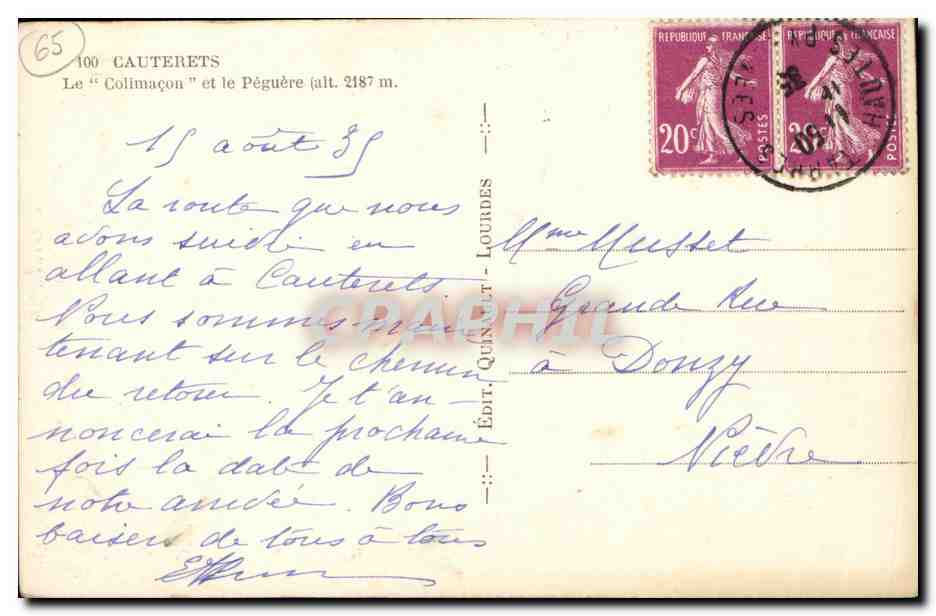 65
100 CAUTERETS
Le " Colimaçon " et le Péguère (alt. 2187 m.
15 août 35
La route que nous
avons suivie en
allant à Cauterets
Nous sommes main
tenant sur le chemin
du retour. Je t'an-
noncerai la prochaine
fois la date de
notre arrivée. Bons
baisers de tous à tous
-::- ÉDIT. QUINAULT - LOURDES -::-
REPUBLIQUE FRANÇAISE
20c
POSTES
REPUBLIQUE FRANÇAISE
20c
POSTES
TARBES
Mme Musset
Grande Rue
à Donzy
Nièvre
CPAPHIL